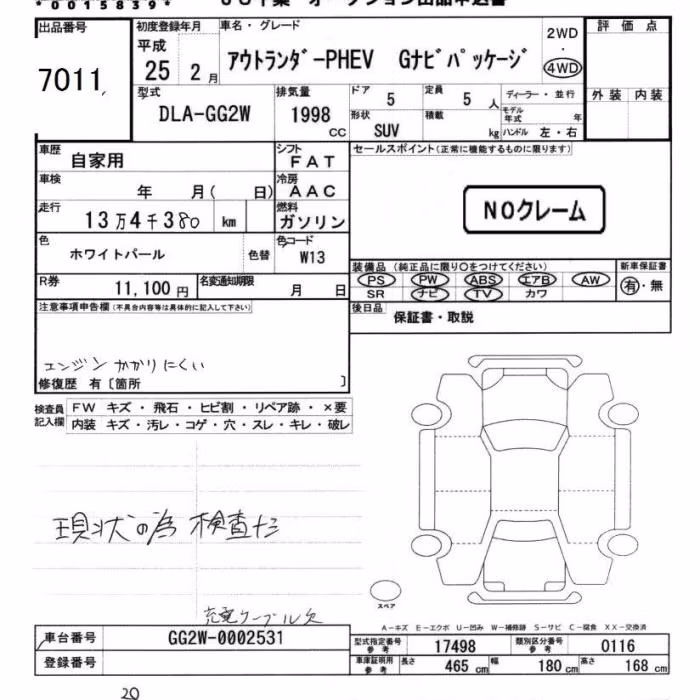 *0015839*
出品番号 初度登録年月 車名・グレード 2WD・4WD 評価点
7011 平成 25 2月 アウトランダｰPHEV Gナビパッケージ
型式 DLA-GG2W 排気量 1998 CC ドア 5 定員 5 人 ディーラー・並行 外装 内装
形状 SUV 積載 kg モデル年式 年 ハンドル 左・右
車歴 自家用 シフト FAT セールスポイント(正常に機能するものに限ります)
車検 年 月( 日) 冷房 AAC
走行 13万4千380 km 燃料 ガソリン NOクレーム
色 ホワイトパール 色替 色コード W13
装備品 (純正品に限り○をつけてください) 新車保証書
PS PW ABS エアB AW 有・無
SR ナビ TV カワ
R券 11,100円 名変通知期限 月 日
後日品 保証書・取説
注意事項申告欄(不具合内容等は具体的に記入して下さい)
エンジンかかりにくい
修復歴 有〔箇所 〕
検査員記入欄 FW キズ・飛石・ヒビ割・リペア跡・×要
内装 キズ・汚レ・コゲ・穴・スレ・キレ・破レ
現状の為 検査ナシ
充電ケーブル欠
スペア
A－キズ E－エクボ U－凹み W－補修跡 S－サビ C－腐食 XX－交換済
車台番号 GG2W-0002531
登録番号
型式指定番号 参考 17498 類別区分番号 参考 0116
車庫証明用 参考 長さ 465 cm 幅 180 cm 高さ 168 cm
20